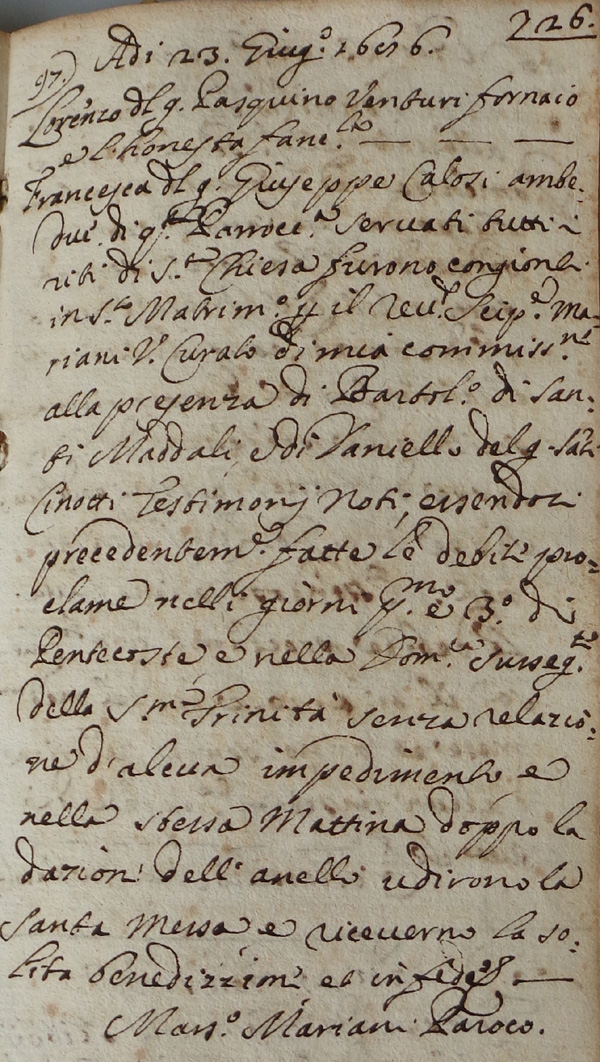 226.
97.) Adi 23. Giug.º 1686.
Lorenzo dl q. Pasquino Venturi fornaio
e l'honesta fanc.la — — —
Francesca dl q. Giuseppe Calosi ambe-
due di q.ta Parrocc.a servati tutti i
riti di S.ta Chiesa furono congionti
in S.to Matrim.º p il Rev. Scip.e Ma-
riani V. Curato di mia commiss.ne
alla presenza di Bartol.º di San-
ti Maddali, e di Vaniello del q. Sati
Cinotti Testimonij Noti, essendosi
precedentem.e fatte le debite pro=
clame nelli giorni p.mo e 3.º di
Pentecoste, e nella Dom.ca susseg.te
della S.ma Trinità senza relazio=
ne d'alcun impedimento, e
nella stessa Mattina doppo la
dazion dell'anello udirono la
Santa Messa e riceverno la so=
lita benedizzione et in fede —
Mars.º Mariani Paroco.